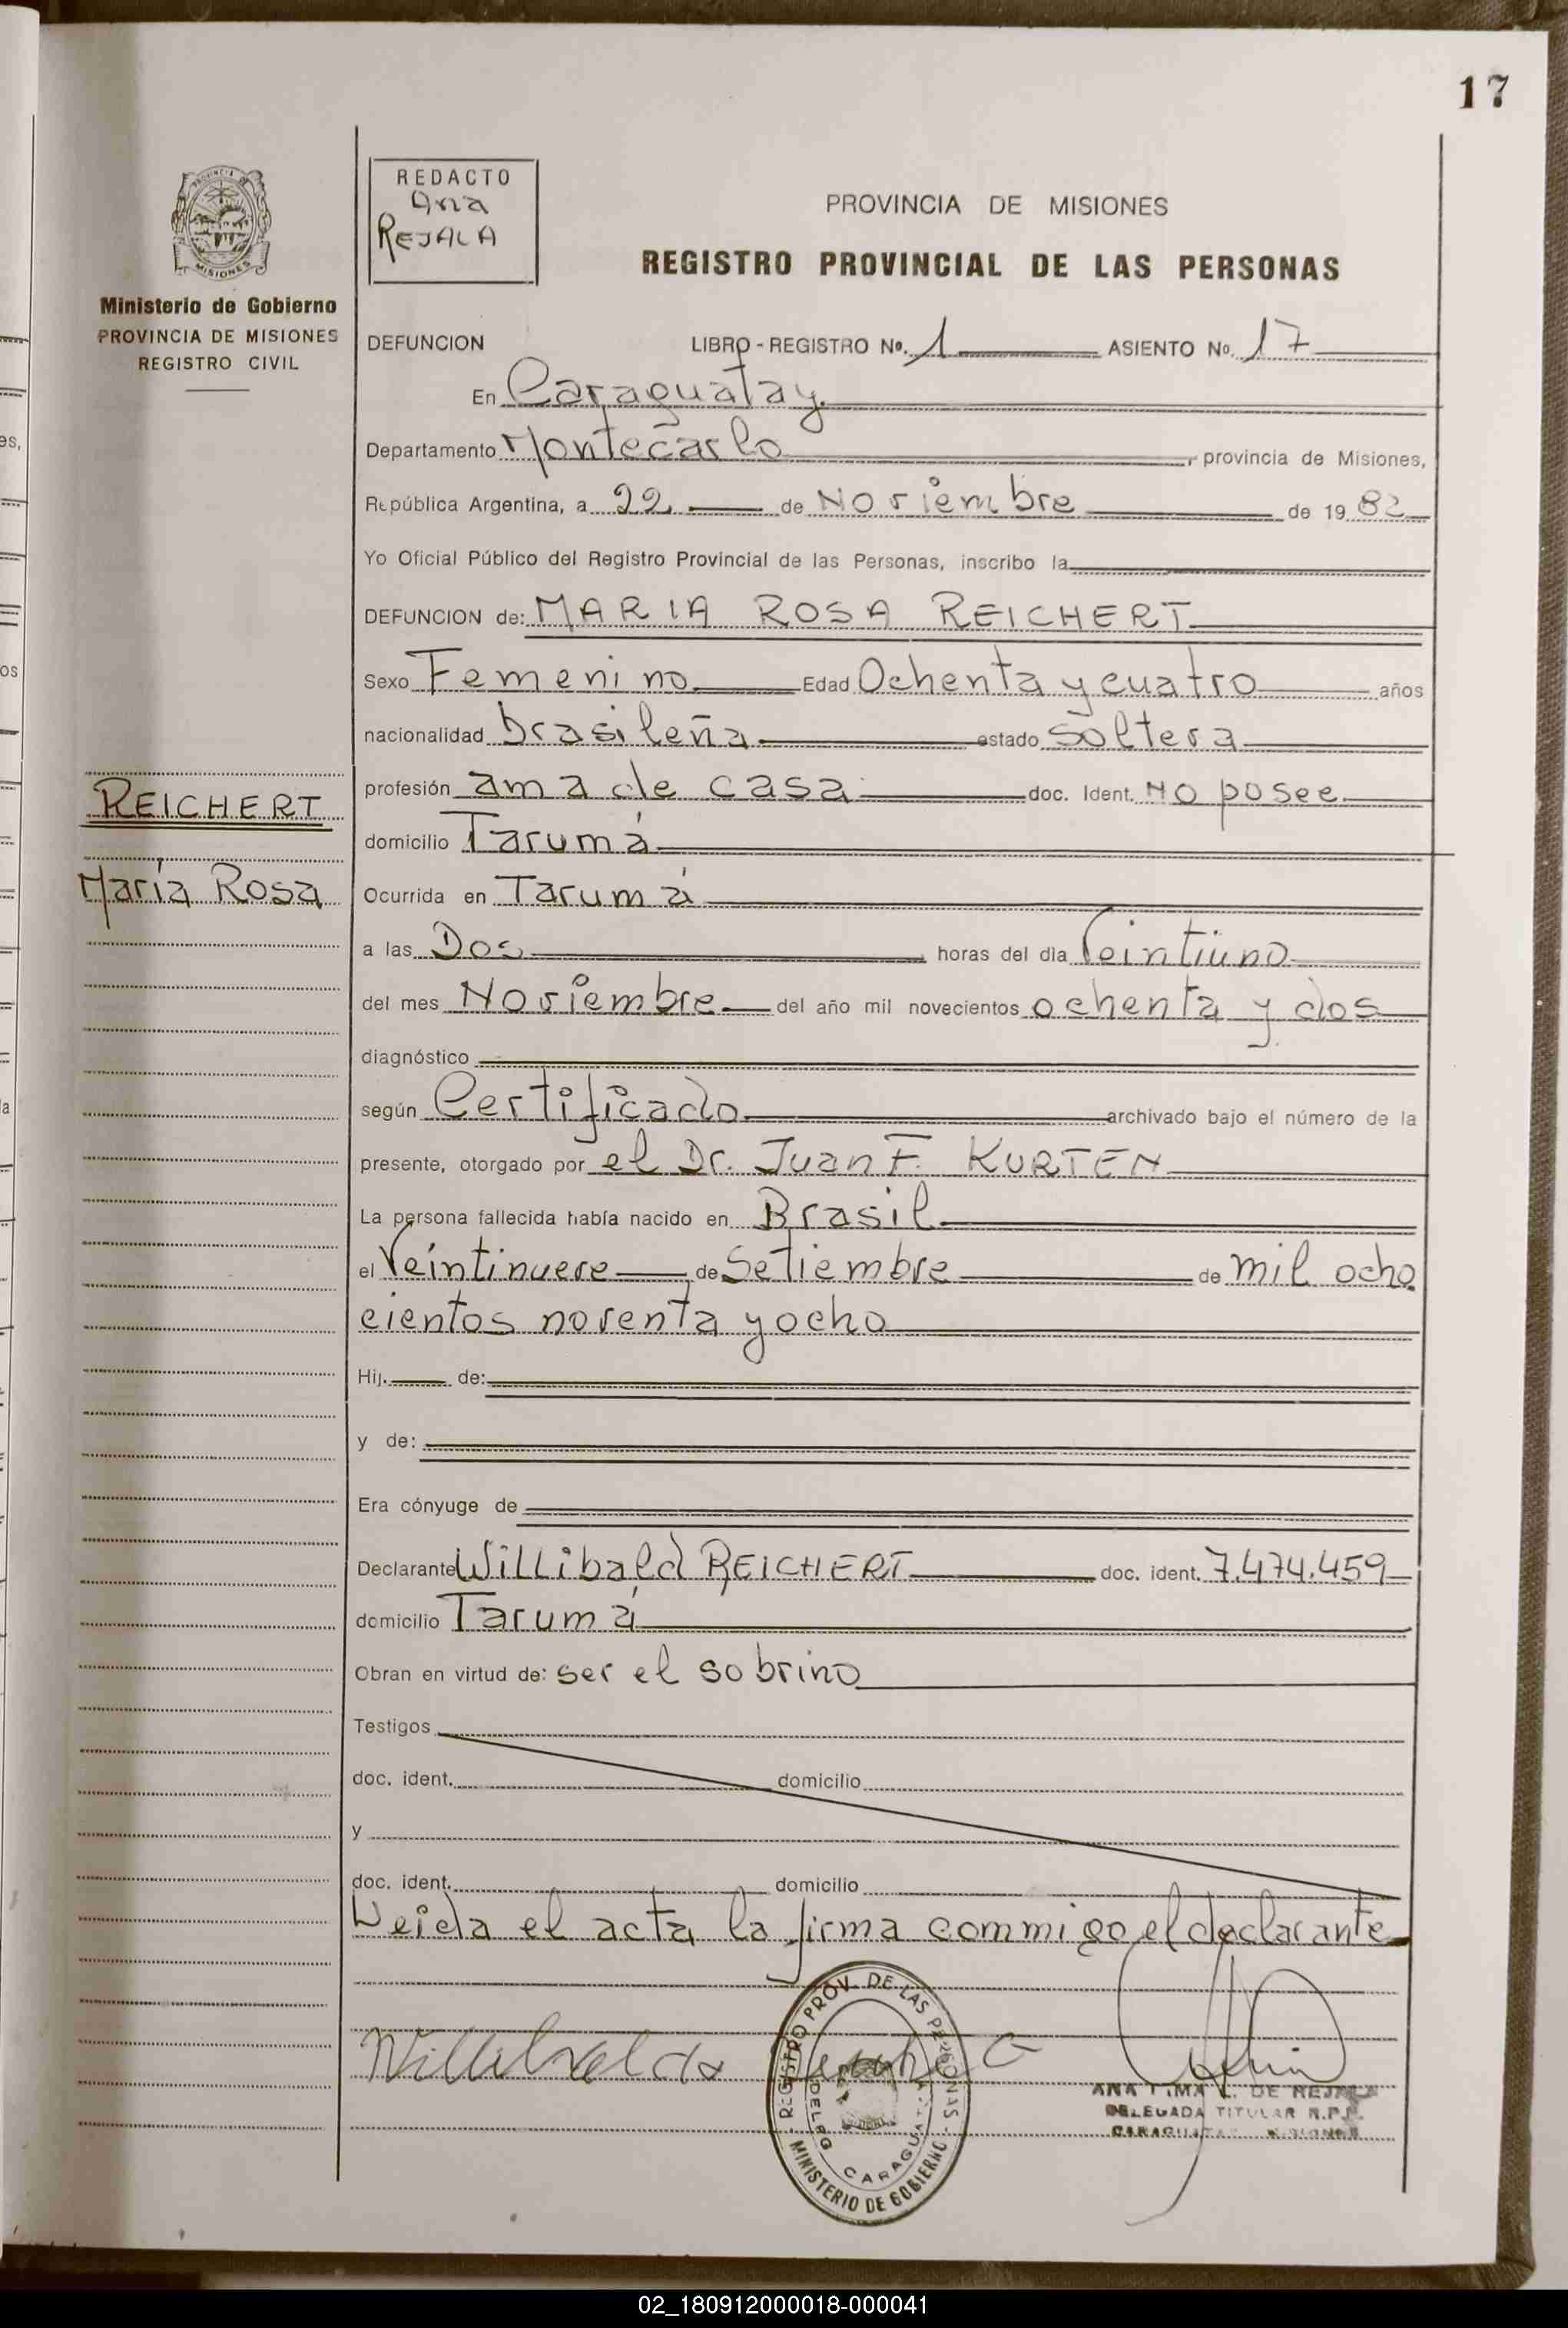 17
REDACTO
Ana
REJALA
PROVINCIA DE MISIONES
REGISTRO PROVINCIAL DE LAS PERSONAS
PROVINCIA
MISIONES
Ministerio de Gobierno
PROVINCIA DE MISIONES
REGISTRO CIVIL
DEFUNCION LIBRO - REGISTRO Nº. 1 ASIENTO Nº. 17
En Caraguatay.
Departamento Montecarlo, provincia de Misiones,
República Argentina, a 22 de Noviembre de 1982
Yo Oficial Público del Registro Provincial de las Personas, inscribo la
DEFUNCION de: MARIA ROSA REICHERT
Sexo Femenino Edad Ochenta y cuatro años
nacionalidad brasileña estado soltera
profesión ama de casa doc. Ident. No posee
REICHERT
domicilio Tarumá
María Rosa
Ocurrida en Tarumá
a las Dos horas del día Veintiuno
del mes Noviembre del año mil novecientos ochenta y dos
diagnóstico
según Certificado archivado bajo el número de la
presente, otorgado por el Dr. Juan F. KURTEN
La persona fallecida había nacido en Brasil
el Veintinueve de Setiembre de mil ocho
cientos noventa y ocho
Hij. de:
y de:
Era cónyuge de
Declarante Willibald REICHERT doc. ident. 7.474.459
domicilio Tarumá
Obran en virtud de: ser el sobrino
Testigos
doc. ident. domicilio
y
doc. ident. domicilio
Leída el acta, la firma commigo, el declarante
REGISTRO PROV. DE LAS PERSONAS
DELEG CARAGUATAY
MINISTERIO DE GOBIERNO
DE REJALA
DELEGADA TITULAR R.P.P.
CARAGUATAY MISIONES
02_180912000018-000041